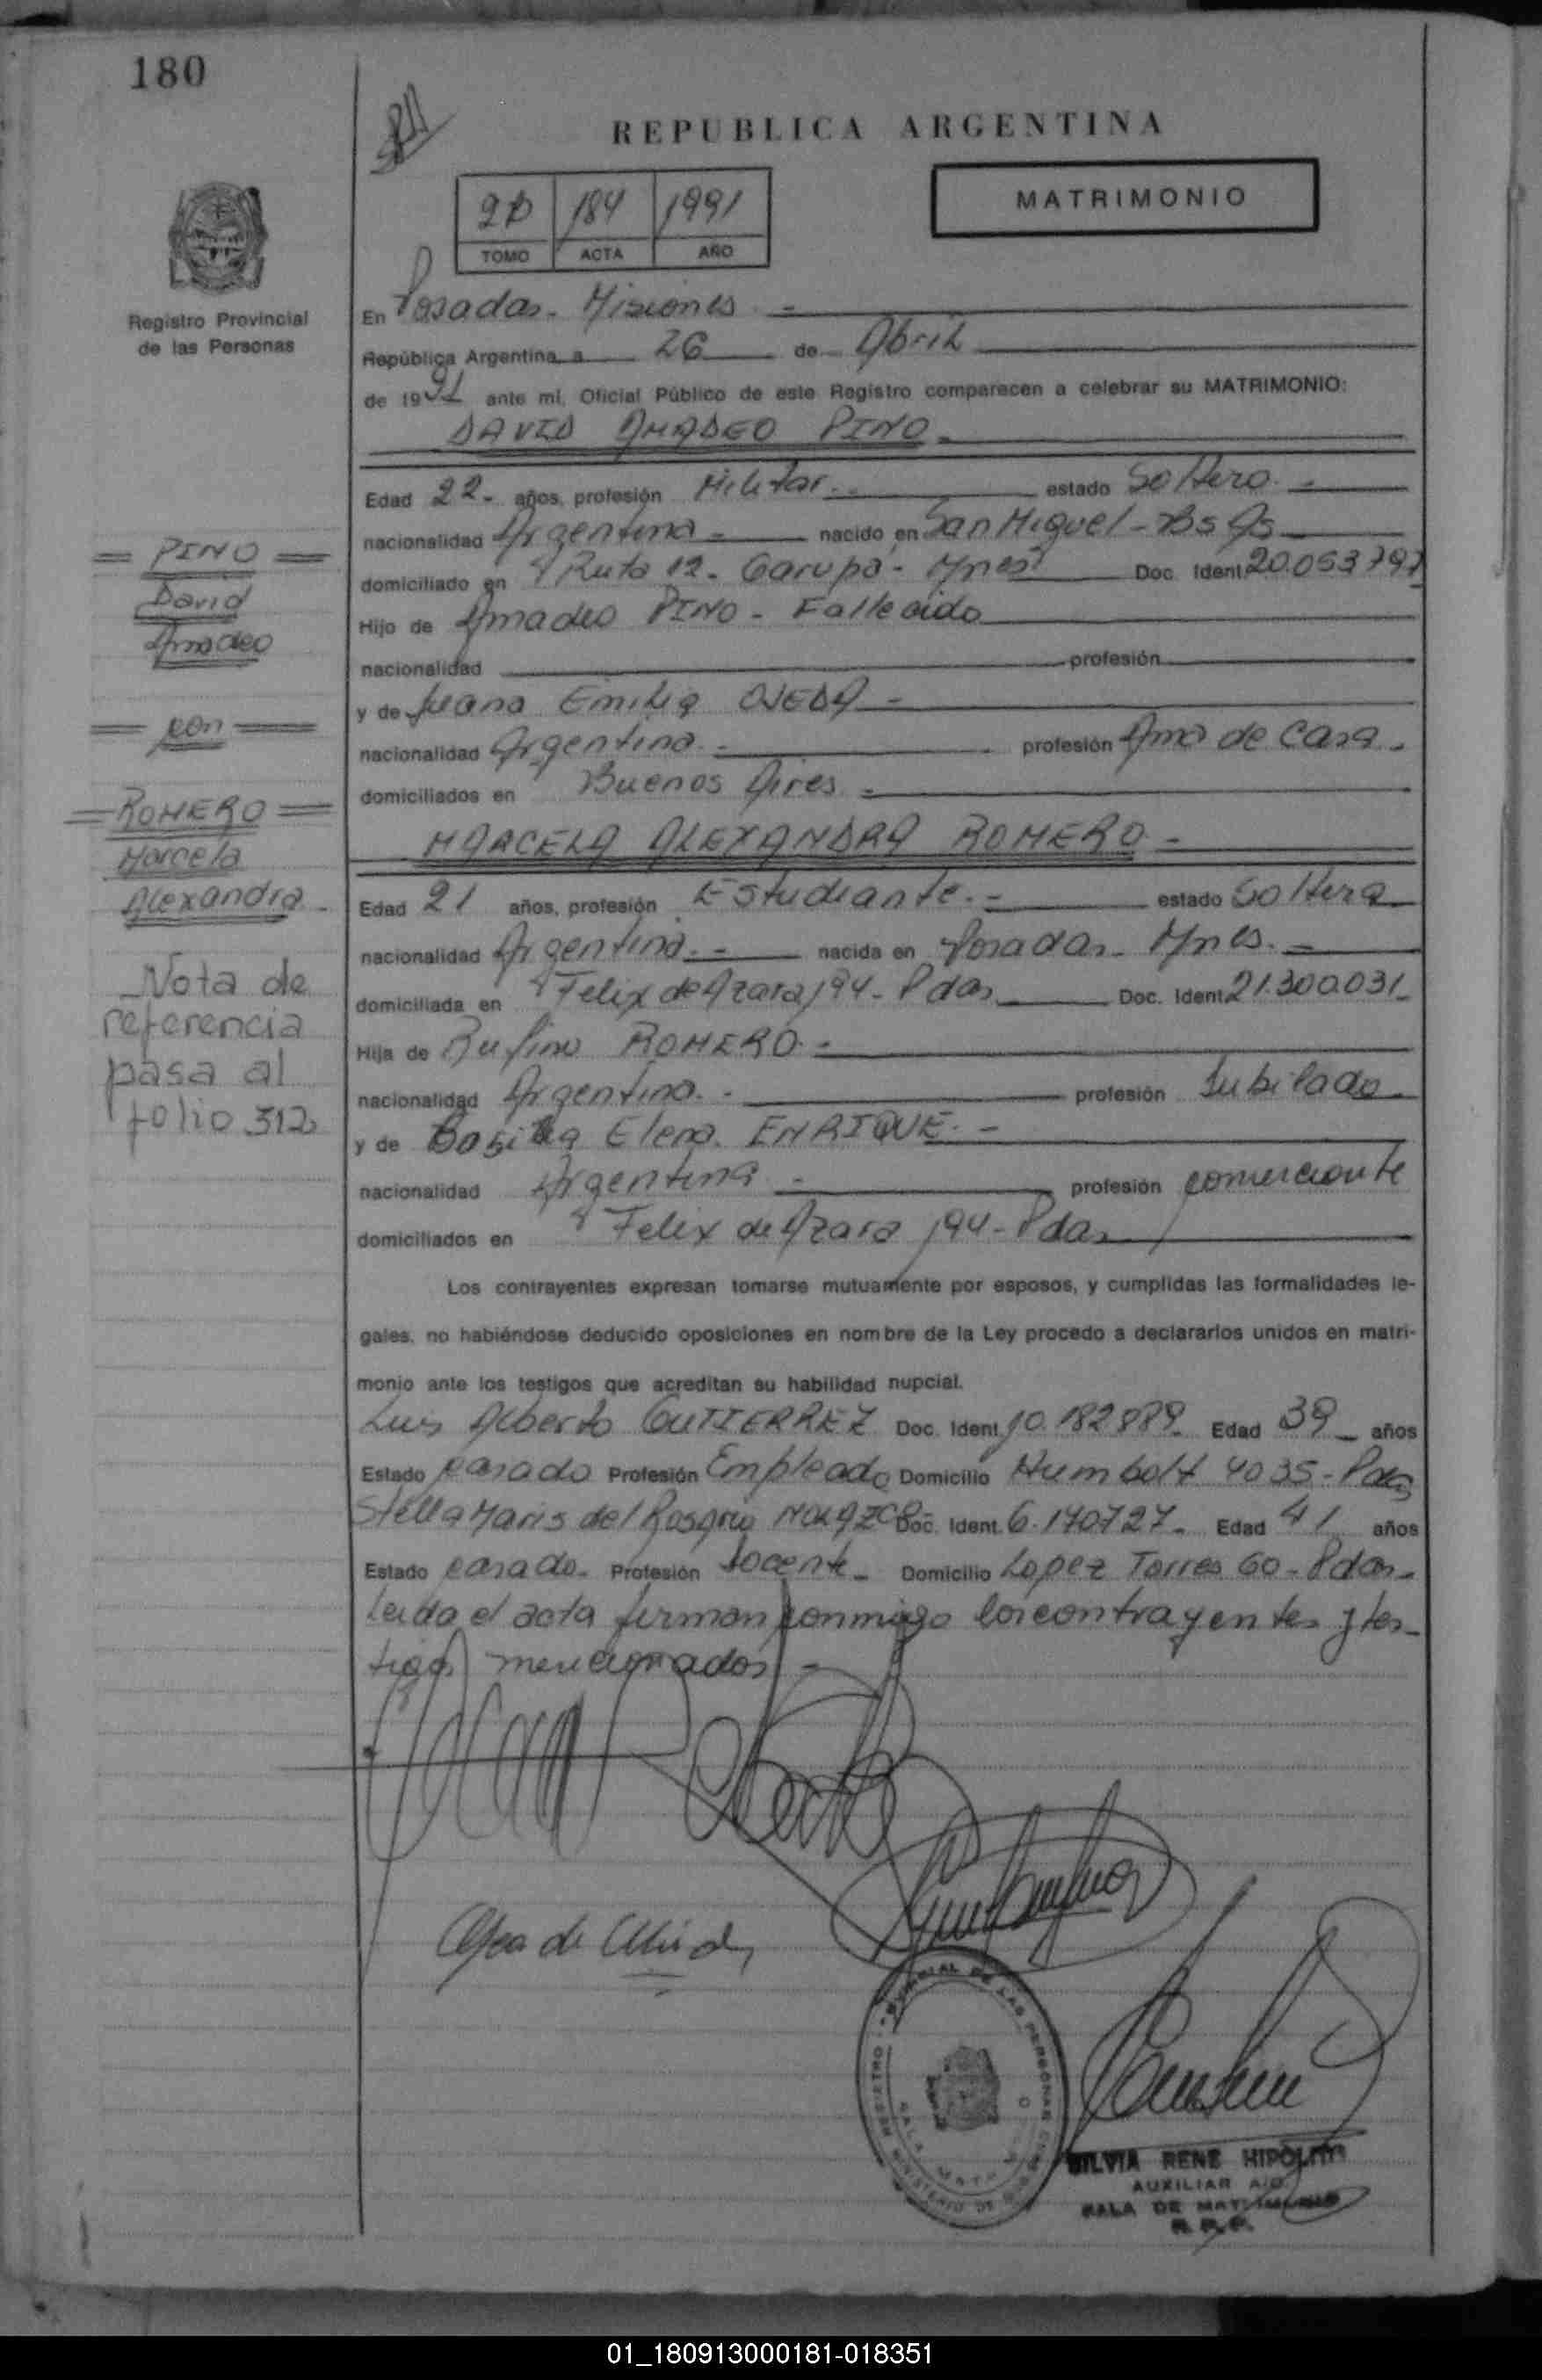 180
REPUBLICA ARGENTINA
MATRIMONIO
184 1991
TOMO ACTA AÑO
Registro Provincial
de las Personas
En Posadas - Misiones -
República Argentina a 26 de Abril
de 1991 ante mi, Oficial Público de este Registro comparecen a celebrar su MATRIMONIO:
DAVID AMADEO PINO -
Edad 22 - años, profesión Militar - estado Soltero -
nacionalidad Argentina - nacido en San Miguel - Bs As
domiciliado en Ruta 12 - Garupá - Mnes Doc. Ident. 20.053.797
Hijo de Amadeo PINO - Fallecido
nacionalidad profesión
y de Juana Emilia OJEDA -
nacionalidad Argentina - profesión Ama de Casa -
domiciliados en Buenos Aires -
MARCELA ALEXANDRA ROMERO -
Edad 21 años, profesión Estudiante - estado Soltera
nacionalidad Argentina - nacida en Posadas - Mnes. -
domiciliada en Felix de Azara 194 - Pdas Doc. Ident. 21.300.031
Hija de Rufino ROMERO -
nacionalidad Argentina - profesión Jubilado
y de Elena ENRIQUE -
nacionalidad Argentina - profesión comerciante
domiciliados en Felix de Azara 194 - Pdas
Los contrayentes expresan tomarse mutuamente por esposos, y cumplidas las formalidades le-
gales, no habiéndose deducido oposiciones en nombre de la Ley procedo a declararlos unidos en matri-
monio ante los testigos que acreditan su habilidad nupcial.
Luis Alberto GUTIERREZ Doc. Ident. 10.182.889 - Edad 39 - años
Estado casado Profesión Empleado Domicilio Humbolt 4035 - Pdas
Stella Maris del Rosario Doc. Ident. 6.170727 - Edad 41 años
Estado casado - Profesión Docente - Domicilio Lopez Torres 60 - Pdas -
Leida el acta firman conmigo los contrayentes y tes-
tigos mencionados -
= PINO =
David
Amadeo
= con =
= ROMERO =
Marcela
Alexandra -
Nota de
referencia
pasa al
folio 312
SILVIA RENE HIPOLITO
AUXILIAR A/C
SALA DE MATRIMONIO
R. P. P.
01_180913000181-018351